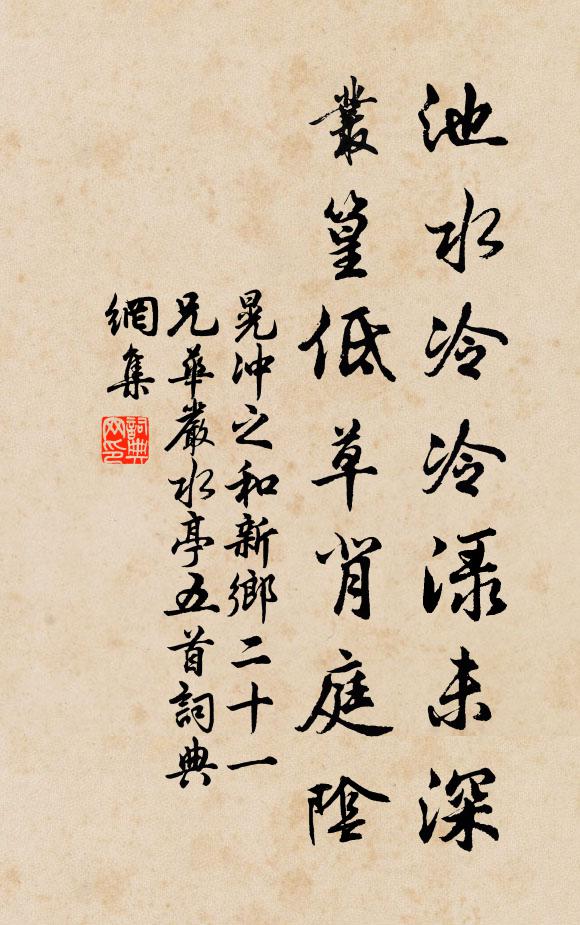 池水冷冷渌未深
叢篁低草背庭陰
晁沖之和新鄉二十一
兄華嚴水亭五首詞典
網集
詞典網印